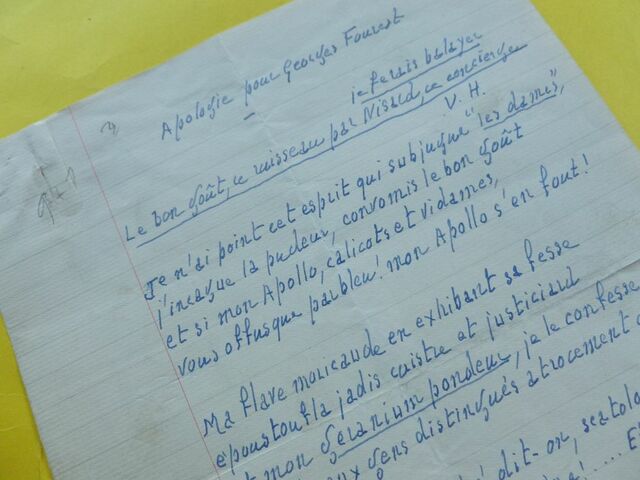 Apologie pour Georges Fourest
je ferais balayer
Le bon goût, ce ruisseau par Nisard, ce concierge
V. H.
Je n'ai point cet esprit qui subjugue "les dames",
j'incague la pudeur, convomis le bon goût
et si mon Apollo, calicots et vidames,
vous offusque parbleu! mon Apollo s'en fout!
Ma flave moricaude en exhibant sa fesse
époustoufla jadis cuistre et justiciard
et mon géranium pondeur, je le confesse
gens distingués atrocement
dit-on,